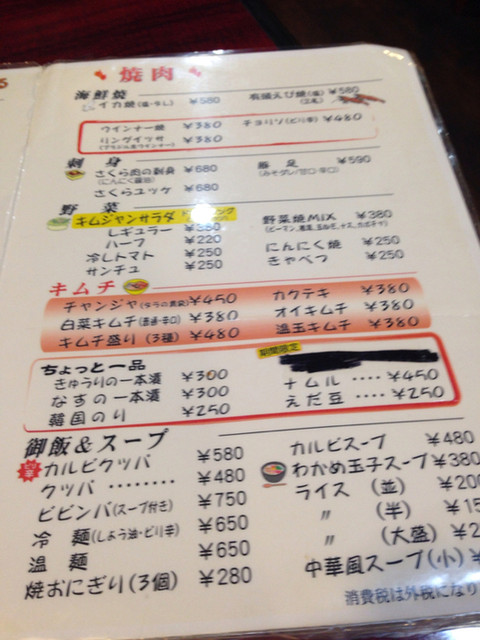 焼肉
海鮮焼
イカ焼(塩・タレ) ¥580
有頭えび焼(塩)(2尾) ¥580
ウインナー焼 ¥380
チョリソ(ピリ辛) ¥480
リングイッサ ¥380
(ブラジル生ウインナー)
刺身
さくら肉の刺身 ¥680
(にんにく醤油)
豚足 ¥590
(みそダレ/甘口・辛口)
さくらユッケ ¥680
野菜
キムジャンサラダ
レギュラー ¥380
ハーフ ¥220
冷しトマト ¥250
サンチュ ¥250
野菜焼MIX ¥380
(ピーマン、椎茸、玉ねぎ、ナス、カボチャ)
にんにく焼 ¥250
きゃべつ ¥250
キムチ
チャンジャ(タラの胃袋) ¥450
白菜キムチ(普通・辛口) ¥380
キムチ盛り(3種) ¥480
カクテキ ¥380
オイキムチ ¥380
温玉キムチ ¥380
ちょっと一品
きゅうりの一本漬 ¥300
なすの一本漬 ¥300
韓国のり ¥250
期間限定
ナムル ‥‥ ¥450
えだ豆 ‥‥ ¥250
御飯&スープ
カルビクッパ ¥580
クッパ ‥‥‥‥ ¥480
ビビンバ(スープ付き) ¥750
冷麺(しょう油・ピリ辛) ¥650
温麺 ¥650
焼おにぎり(3個) ¥280
カルビスープ ¥480
わかめ玉子スープ ¥380
ライス(並) ¥200
〃(半) ¥15
〃(大盛) ¥2
中華風スープ(小) ¥
消費税は外税になり